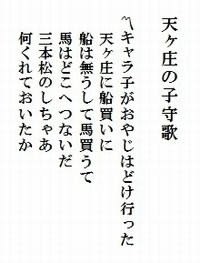 天ヶ庄の子守歌
〽キャラ子がおやじはどけ行った
天ヶ庄に船買いに
船は無うして馬買うて
馬はどこへつないだ
三本松のしちゃあ
何くれておいたか